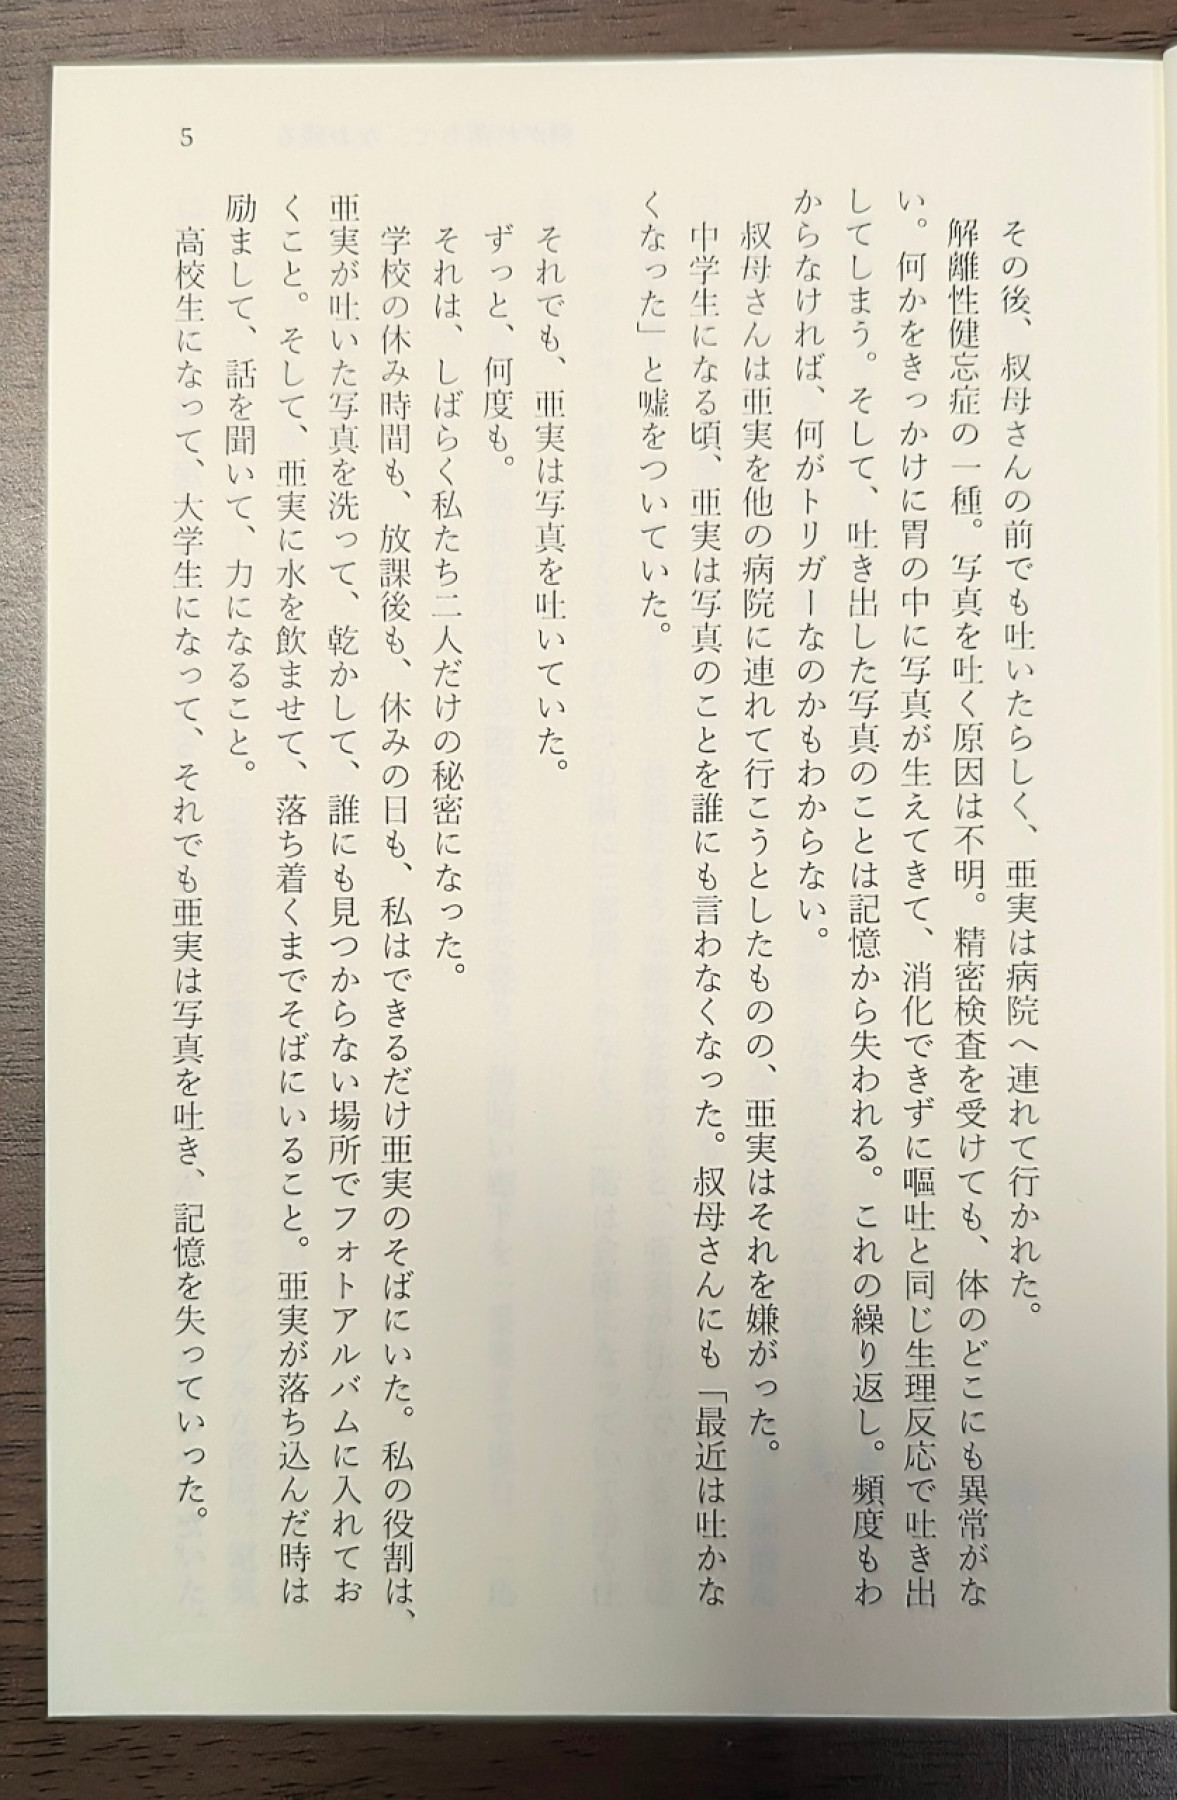 5
その後、叔母さんの前でも吐いたらしく、亜実は病院へ連れて行かれた。
解離性健忘症の一種。写真を吐く原因は不明。精密検査を受けても、体のどこにも異常がな
い。何かをきっかけに胃の中に写真が生えてきて、消化できずに嘔吐と同じ生理反応で吐き出
してしまう。そして、吐き出した写真のことは記憶から失われる。これの繰り返し。頻度もわ
からなければ、何がトリガーなのかもわからない。
叔母さんは亜実を他の病院に連れて行こうとしたものの、亜実はそれを嫌がった。
中学生になる頃、亜実は写真のことを誰にも言わなくなった。叔母さんにも「最近は吐かな
くなった」と嘘をついていた。
それでも、亜実は写真を吐いていた。
ずっと、何度も。
それは、しばらく私たち二人だけの秘密になった。
学校の休み時間も、放課後も、休みの日も、私はできるだけ亜実のそばにいた。私の役割は、
亜実が吐いた写真を洗って、乾かして、誰にも見つからない場所でフォトアルバムに入れてお
くこと。そして、亜実に水を飲ませて、落ち着くまでそばにいること。亜実が落ち込んだ時は
励まして、話を聞いて、力になること。
高校生になって、大学生になって、それでも亜実は写真を吐き、記憶を失っていった。